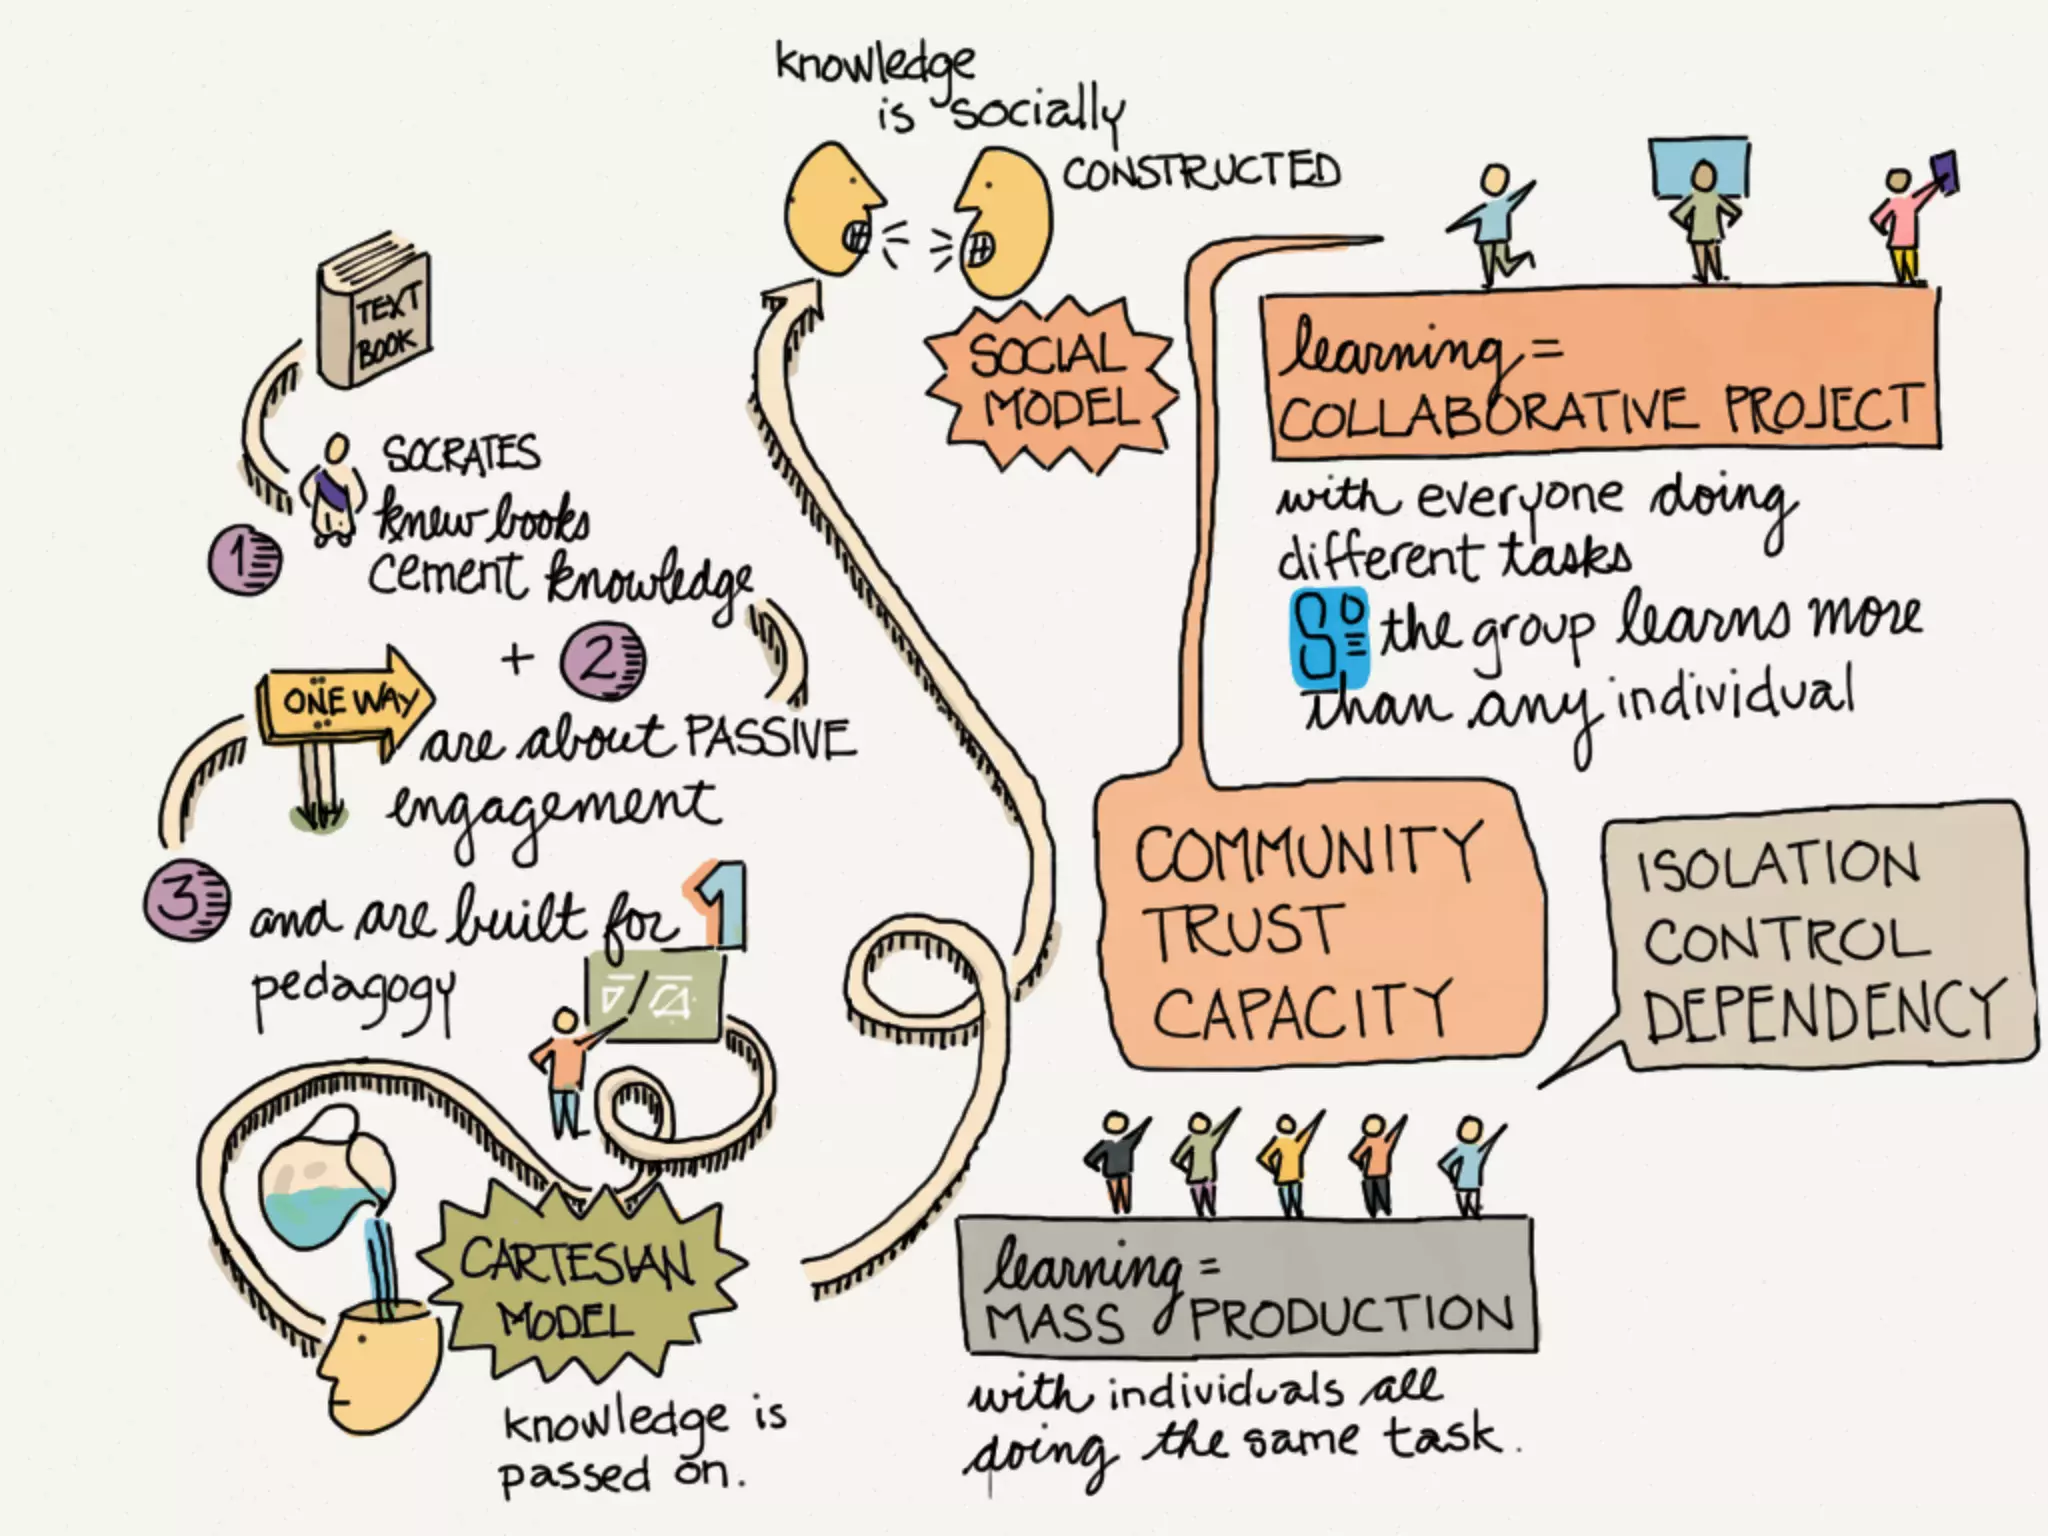 knowledge
is socially
CONSTRUCTED
SOCIAL
MODEL
TEXT
BOOK
1
SOCRATES
knew books
cement knowledge
+ 2
ONE WAY
are about PASSIVE
engagement
3
and are built for 1
pedagogy
CARTESIAN
MODEL
knowledge is
passed on.
learning =
COLLABORATIVE PROJECT
with everyone doing
different tasks
So the group learns more
than any individual
COMMUNITY
TRUST
CAPACITY
ISOLATION
CONTROL
DEPENDENCY
learning =
MASS PRODUCTION
with individuals all
doing the same task.